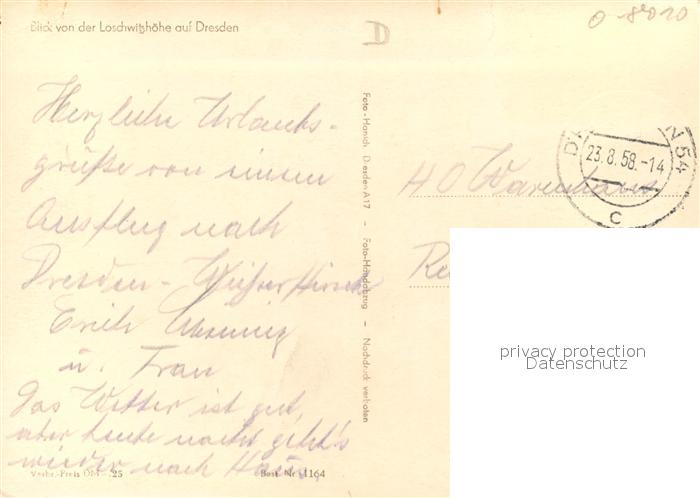 Blick von der Loschwitzhöhe auf Dresden
D
0-8010
Herzliche Urlaubs-
grüße von einem
Ausflug nach
Dresden - Weißer Hirsch
Erich
u. Frau
Das Wetter ist gut,
aber heute nacht geht's
wieder nach Haus.
Verbr.-Preis DM -.25
Best. Nr. 1164
Foto-Hanich, Dresden A 17 - Foto-Handabzug - Nachdruck verboten
23.8.58.-14
N 54
C
HO Warenhaus
privacy protection
Datenschutz